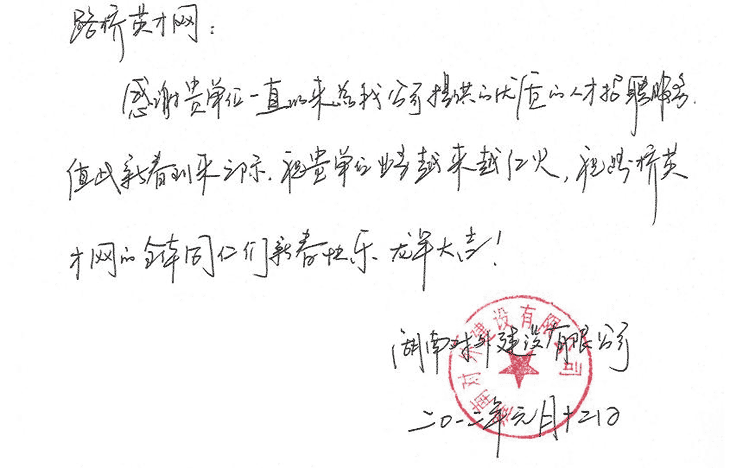 路桥英才网：
感谢贵单位一直以来为我公司提供的优质的人才招聘服务.
值此新春到来之际.祝贵单位业务越来越红火,祝路桥英
才网的全体同仁们新春快乐 龙年大吉!
湖南对外建设有限公司
湖南对外建设有限公司
二0一二年元月十二日